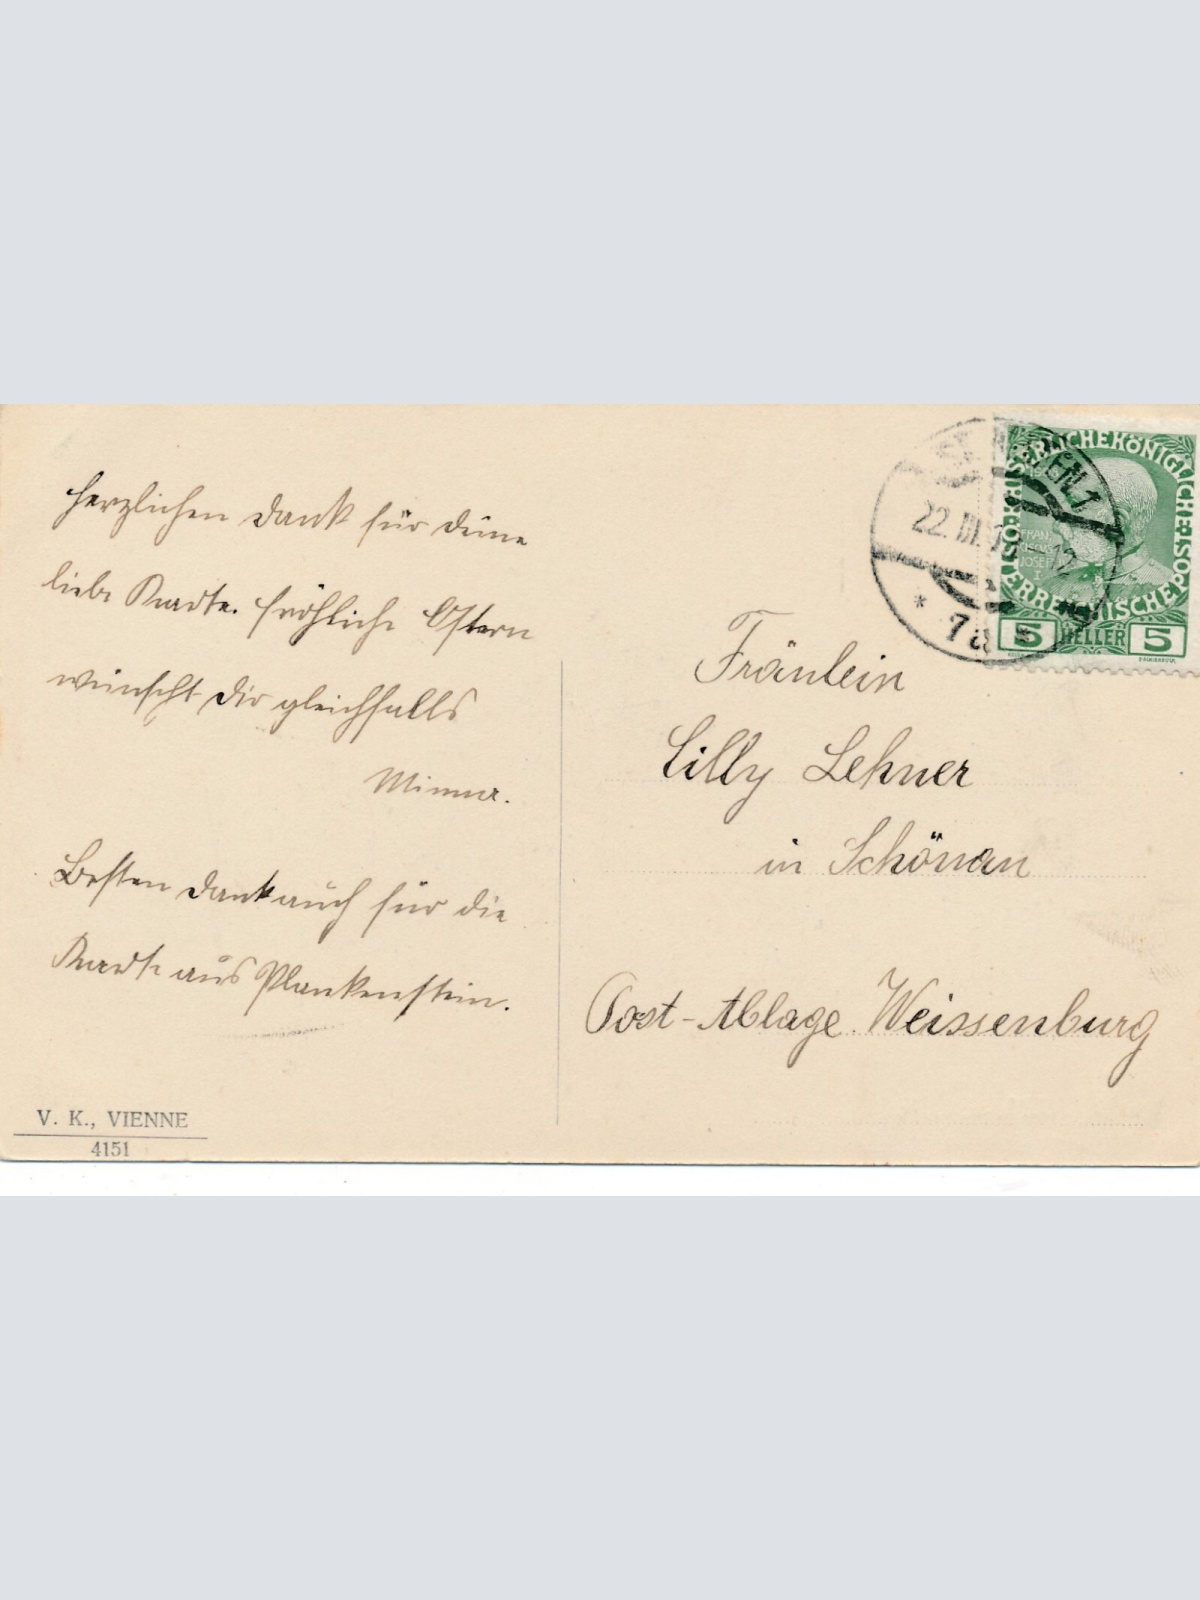 Herzlichen Dank für Deine
liebe Karte. Fröhliche Ostern
wünscht Dir gleichfalls
Minna.
Besten Dank auch für die
Karte aus Plankenstein.
V. K., VIENNE
4151
22. III.
* 1a *
KAISERLICHE KÖNIGLICHE ÖSTERREICHISCHE POST
FRANCISCUS JOSEPH I
5 HELLER 5
Fräulein
Lilly Lehner
in Schönau
Post-Ablage Weissenburg